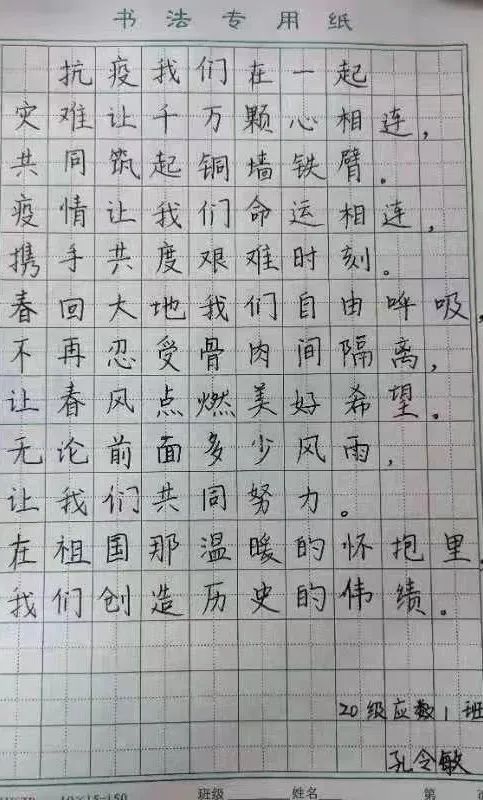 书法专用纸
抗疫我们在一起
灾难让千万颗心相连，
共同筑起铜墙铁臂。
疫情让我们命运相连，
携手共度艰难时刻。
春回大地我们自由呼吸，
不再忍受骨肉间隔离，
让春风点燃美好希望。
无论前面多少风雨，
让我们共同努力。
在祖国那温暖的怀抱里，
我们创造历史的伟绩。
20级应数1班
孔令敏
10×15=150 班级 姓名 第